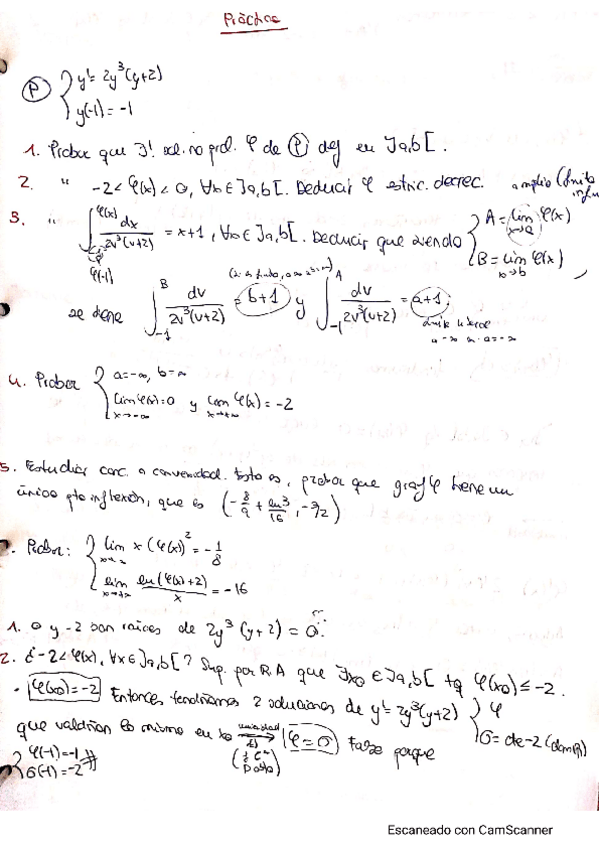 Práctica
(P) { y' = 2y³(y+2)
y(-1) = -1
1. Probar que ∃! sol. no prol. φ de (P) def en ]a,b[.
2. " -2 < φ(x) < 0, ∀x ∈ ]a,b[. Deducir φ estric. decrec.
3. " ∫_{φ(-1)}^{φ(x)} dx / 2v³(v+2) = x+1, ∀x ∈ ]a,b[. Deducir que siendo { A = lim_{x→a} φ(x)
B = lim_{x→b} φ(x)
se tiene ∫_{-1}^{B} dv / 2v³(v+2) = b+1 y ∫_{-1}^{A} dv / 2v³(v+2) = a+1;
4. Probar { a = -∞, b = ∞
lim_{x→-∞} φ(x) = 0 y lim_{x→+∞} φ(x) = -2
5. Estudiar conc. o convexidad. Esto es, probar que graf φ tiene un
único pto inflexión, que es (-8/9 + ln3/16, -3/2)
Probar: { lim x (φ(x))² = -1/8
lim_{x→+∞} ln(φ(x)+2) / x = -16
1. 0 y -2 son raíces de 2y³(y+2) = 0.
2. ¿-2 < φ(x), ∀x ∈ ]a,b[? Sup. por R.A que ∃x₀ ∈ ]a,b[ tq φ(x₀) ≤ -2.
· φ(x₀) = -2 Entonces tendríamos 2 soluciones de y' = 2y³(y+2) { φ
σ = cte -2
que valdrían lo mismo en x₀ ⟹ unicidad φ = σ falso porque
{ φ(-1) = -1
σ(-1) = -2 #
Escaneado con CamScanner